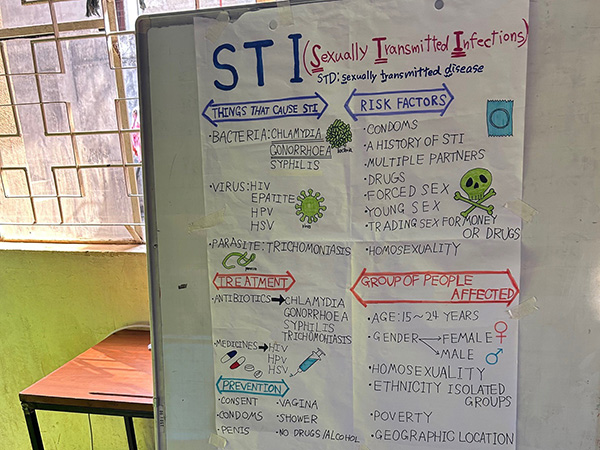 STI (Sexually Transmitted Infections)
STD: sexually transmitted disease
THINGS THAT CAUSE STI
• BACTERIA: CHLAMYDIA
GONORRHOEA
SYPHILIS
bacteria
• VIRUS: HIV
EPATITE
HPV
HSV
virus
• PARASITE: TRICHOMONIASIS
TREATMENT
• ANTIBIOTICS → CHLAMYDIA
GONORRHOEA
SYPHILIS
TRICHOMONIASIS
• MEDICINES → HIV
HPV
HSV
PREVENTION
• CONSENT
• CONDOMS
• PENIS
• VAGINA
• SHOWER
• NO DRUGS/ALCOHOL
RISK FACTORS
• CONDOMS
• A HISTORY OF STI
• MULTIPLE PARTNERS
• DRUGS
• FORCED SEX
• YOUNG SEX
• TRADING SEX FOR MONEY
OR DRUGS
• HOMOSEXUALITY
GROUP OF PEOPLE
AFFECTED
• AGE: 15~24 YEARS
• GENDER → FEMALE ♀
→ MALE ♂
• HOMOSEXUALITY
• ETHNICITY ISOLATED
GROUPS
• POVERTY
• GEOGRAPHIC LOCATION